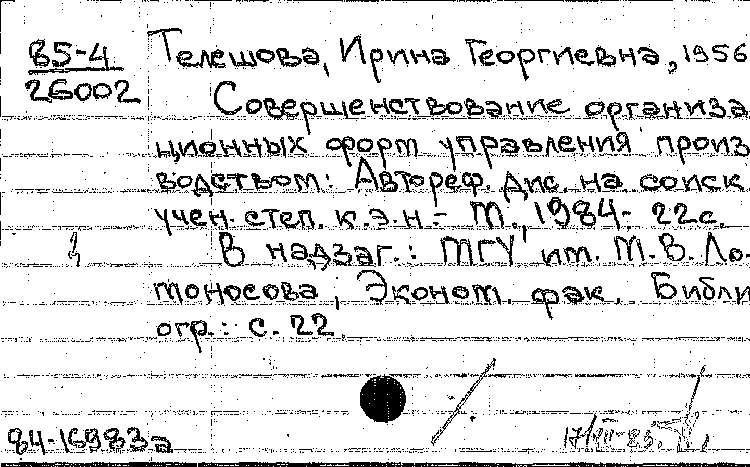 85-4
26002
Телешова, Ирина Георгиевна, 1956
Совершенствование организа
ционных форм управления произ
водством: Автореф. дис. на соиск.
учен. степ. к.э.н. - М., 1984. - 22с.
В надзаг.: МГУ им. М.В. Ло-
моносова; Эконом. фак. Библи
огр.: с. 22.
84-16983а